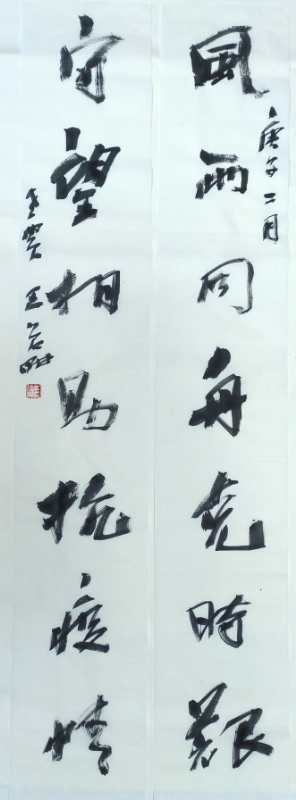 風雨同舟克時艱
庚子二月
守望相助抗疫情